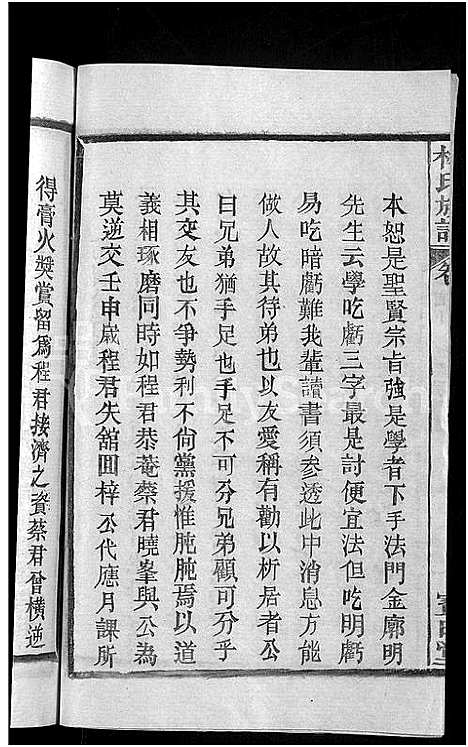 本恕是聖賢宗旨強是學者下手法門金廓明
先生云學吃虧三字最是討便宜法但吃明虧
易吃暗虧難我輩讀書須參透此中消息方能
做人故其待弟也以友愛稱有勸以析居者公
曰兄弟猶手足也手足不可分兄弟顧可分乎
其交友也不爭勢利不尙黨援惟肫肫焉以道
義相琢磨同時如程君恭菴蔡君曉峯與公為
莫逆交壬申歲程君失舘圓梓公代應月課所
得膏火獎賞留爲程君接濟之資蔡君曾横逆